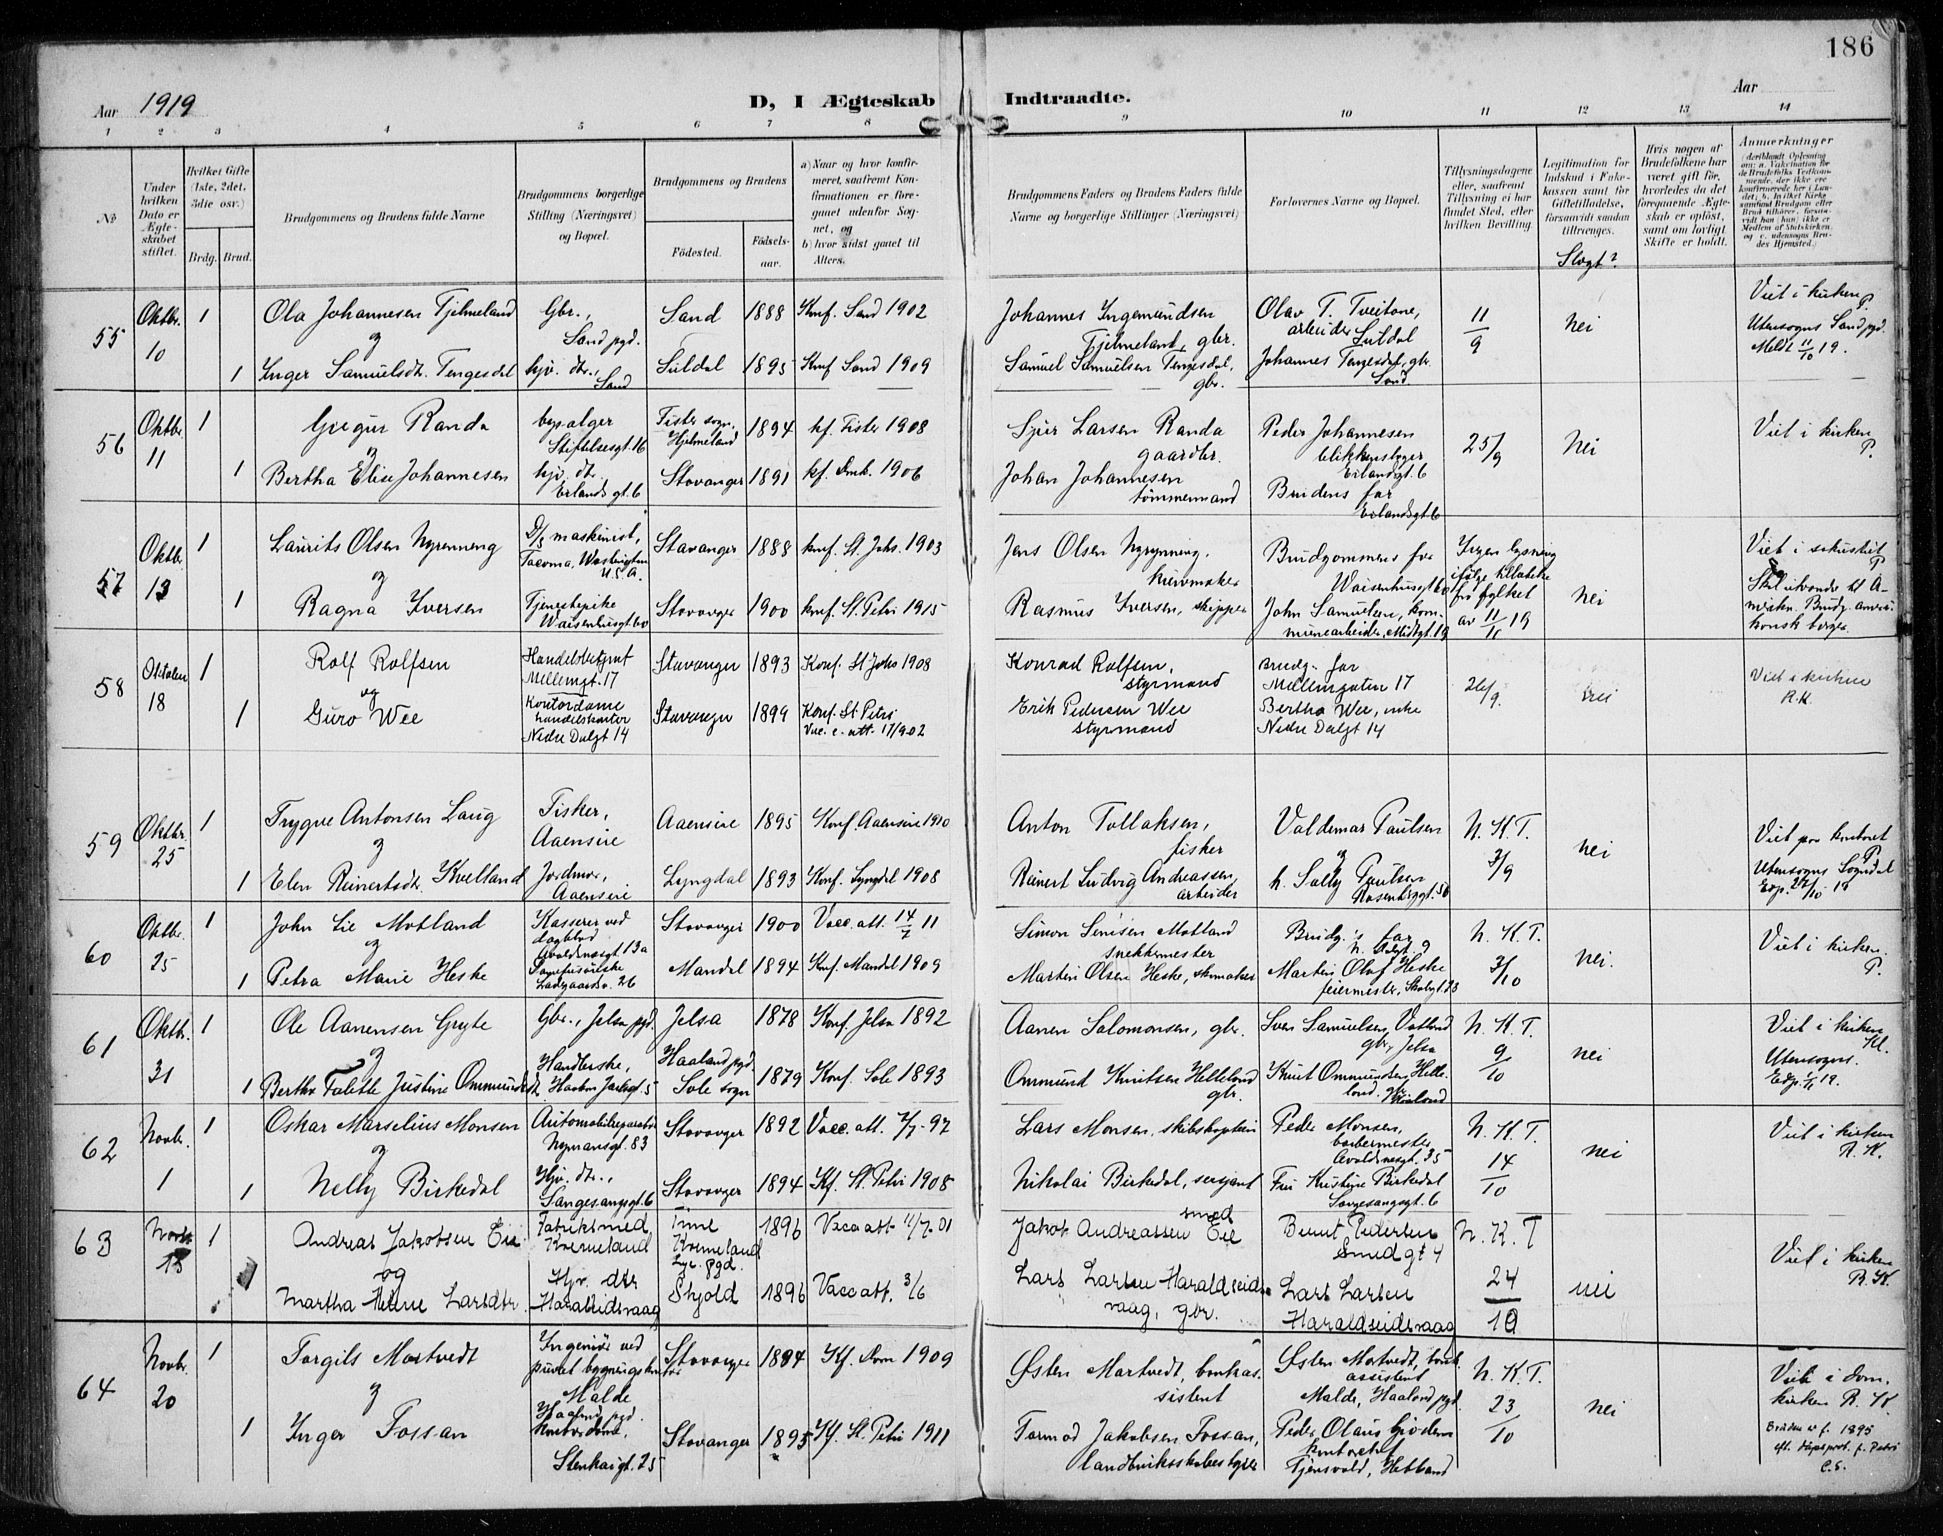 186
Aar 1919
D, I Ægteskab Indtraadte.
Aar
1 2 3 4 5 6 7 8 9 10 11 12 13 14
No
Under hvilken Dato er Ægteskabet stiftet.
Hvilket Gifte (1ste, 2det, 3die osv.)
Brdg. Brud.
Brudgommens og Brudens fulde Navne
Brudgommens borgerlige Stilling (Næringsvei) og Bopæl.
Brudgommens og Brudens
Fødested.
Fødselsaar.
a) Naar og hvor konfirmeret, saafremt Konfirmationen er foregaaet udenfor Sognet, og
b) hvor sidst gaaet til Alters.
Brudgommens Faders og Brudens Faders fulde Navne og borgerlige Stillinger (Næringsvei)
Forlovernes Navne og Bopæl.
Tillysningsdagene eller, saafremt Tillysning ei har fundet Sted, efter hvilken Bevilling.
Legitimation for Indskud i Enkekassen samt for Giftetilladelse, forsaavidt saadan tiltrænges.
Slegt?
Hvis nogen af Brudefolkene har været gift før, hvorledes da det foregaaende Ægteskab er opløst, samt om lovligt Skifte er holdt.
Anmerkninger
55 Oktbr. 10 1 Ola Johannesen Tjelmeland Gbr., Sand pgd. Sand 1888 Konf. Sand 1902 Johannes Ingemundsen Tjelmeland, gbr. Olav T. Tveitane, arbeider Suldal 11/9 Nei Viet i kirken P. Utensogns Sand pgd. Meldt 11/10 19.
og
1 Inger Samuelsdt. Tengesdal hjv. dtr., Sand Suldal 1895 Konf Sand 1909 Samuel Samuelsen Tengesdal, gbr. Johannes Tengesdal, gbr. Sand
56 Oktbr 11 1 Randa Stiftelsesgt. 16 Fister sogn. Hjelmeland 1894 kf. Fister 1908 Larsen Randa gaardbr. Peder Johannesen Erlandsgt. 6 25/9 Nei Viet i kirken P.
og
1 Bertha Elise Johannesen hjv. dtr. Erlandsgt. 6 Stavanger 1891 kf. 1906 Johan Johannesen tømmermand Brudens far Erlandsgt 6
57 Oktbr. 13 1 Laurits Olsen Nyrenning D/s maskinist, Tacoma, Washington U.S.A. Stavanger 1888 konf. St. Johs. 1903 Jens Olsen Nyrenning, Brudgommens far Waisenhusgt 60 Ingen lysning ifølge tilladelse fra fylket av 11/11 19 Nei Viet i sakristiet P
og
1 Ragna Iversen Tjenestepike Waisenhusgt. 60 Stavanger 1900 konf. St. Petri 1915 Rasmus Iversen, skipper John Samuelsen, kommunearbeider, Midtgt. 19 Skal utvandre til Amerika. Brudg. amerikansk borger.
58 Oktober 18 1 Rolf Rolfsen Handelsbetjent Mellemgt. 17 Stavanger 1893 Konf. St Johs 1908 Konrad Rolfsen, styrmand Brudg. far Mellemgaten 17 26/9. nei Viet i kirken R.K.
og
1 Guro Wee Kontordame handelskontor Nedre Dalgt 14 Stavanger 1899 Konf. St Petri Vac. e. att. 17/9 02 Erik Pedersen Wee styrmand Bertha Wee, enke Nedre Dalgt 14
59 Oktbr. 25 1 Trygve Antonsen Laug Fisker, Aaensire Aaensire 1895 Konf. Aaensire 1910 Anton Tollaksen, fisker Valdemar Paulsen N. K. T. 3/9 nei Viet paa kontoret P. Utensogns Sogndal Exp. 27/10 19
og
1 Elen Reinertsdt. Kvelland Jordmor, Aaensire Lyngdal 1893 Konf. Lyngdal 1908 Reinert Ludvig Andreassen, arbeider h. Sally Paulsen Rosenberggt. 56
60 Oktbr. 25 1 John Lie Motland Kasserer ved dagblad Avaldsnesgt 13a Stavanger 1900 Vacc. att. 14/7 11 Simon Motland snekkermester Brudg.'s far N. K. T. 3/10 nei. Viet i kirken P.
og
1 Petra Marie Heske Ladegaardsv. 26 Mandal 1894 Konf. Mandal 1909 Martin Olsen Heske, skomaker Martin Olaf Heske feiermester,
61 Oktbr. 31 1 Ole Aanensen Gryte Gbr., Jelsa pgd. Jelsa 1878 Konf. Jelsa 1892 Aanen Salomonsen, gbr. Sven Samuelsen Vatland gbr, Jelsa N. K. T. 9/10 nei Viet i kirken Utensogns. Exp. 1/11 19.
og
1 Bertha Justine Ommundsdt. Handlerske, Haakon Jarlsgt. 5 Haaland pgd. Sole sogn 1879 Konf. Sole 1893 Ommund Knutsen Helleland gbr. Knut Ommundsen Helleland. Haaland
62 Novbr. 1 1 Oskar Marselius Monsen Nymansgt. 83 Stavanger 1892 Vacc. att. 7/7-97 Lars Monsen, skibskaptein Peder Monsen, barbermester Avaldsnesgt. 35 N. K. T. 14/10 nei Viet i kirken R. K.
og
1 Nelly Birkedal Hjv. dtr., Langesangsgt. 6 Stavanger 1894 Kf. St. Petri 1908 Nikolai Birkedal, sersjant Fru Kristine Birkedal Sangesangsgt. 6
63 Novbr. 15 1 Andreas Jakobsen Eie Fabriksmed Kverneland Time Kverneland Lye. pgd. 1896 Vacc att 11/7-01 Jakob Andreassen Eie smed Bernt Pedersen Smedgt 4 N. K. T 24/10 nei Viet i kirken R. K.
og
Martha Larsdtr. Hjv. dtr Haraldseidsvaag Skjold 1896 Vacc att. 3/6 Lars Larsen Haraldseidsvaag, gbr. Lars Larsen Haraldseidsvaag
64 Novbr 20 1 Torgils Mortvedt Ingeniør ved privat bygningskontor Malde Haaland pgd. Stavanger 1894 Kf. Dom 1909 Østen Mortvedt, bankassistent Østen Mortvedt, bankassistent Malde, Haaland pgd N. K. T. 23/10 nei Viet i domkirken R. K.
og
1 Inger Fossan kontordame, Stenhaigt. 25 Stavanger 1895 Kf. St. Petri 1911 Tormod Jakobsen Fossan, landbruksskolebestyrer Peder Olaus Gjøden kontorchef Tjensvold, Hetland Bruden er f. 1895 eft. dåpsprot. f. Petri C.S.